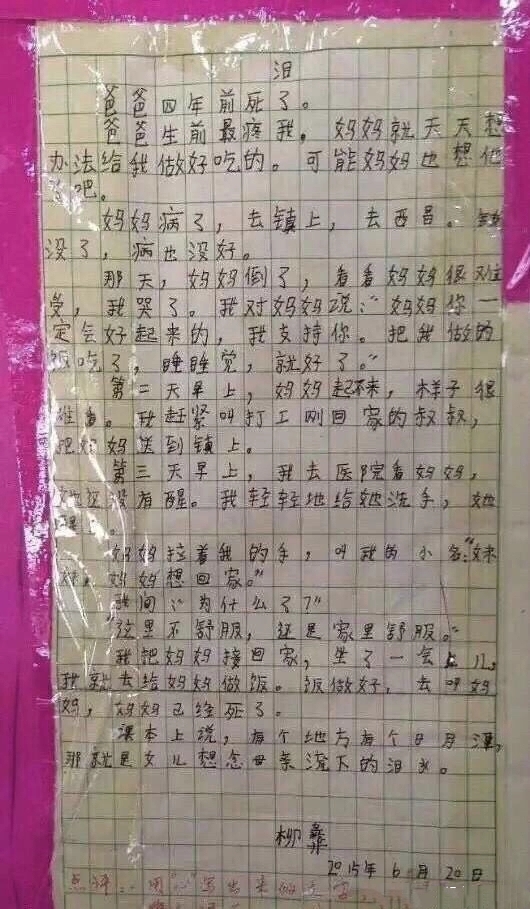 泪
爸爸四年前死了。
爸爸生前最疼我,妈妈就天天想
办法给我做好吃的。可能妈妈也想他
了吧。
妈妈病了,去镇上,去西昌。钱
没了,病也没好。
那天,妈妈倒了,看看妈妈很难
受,我哭了。我对妈妈说:“妈妈你一
定会好起来的,我支持你。把我做的
饭吃了,睡睡觉,就好了。”
第二天早上,妈妈起不来,样子很
难看。我赶紧叫打工刚回家的叔叔,
把妈妈送到镇上。
第三天早上,我去医院看妈妈,
她还没有醒。我轻轻地给她洗手,她
醒了。
妈妈拉着我的手,叫我的小名:“妹
妹,妈妈想回家。”
我问:“为什么了?”
“这里不舒服,还是家里舒服。”
我把妈妈接回家,坐了一会儿,
我就去给妈妈做饭。饭做好,去叫妈
妈,妈妈已经死了。
课本上说,有个地方有个日月潭,
那就是女儿想念母亲流下的泪水。
柳彝
2015年6月20日
点评:用“心”写出来的文字